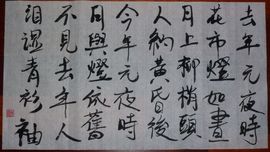 去年元夜時
花市燈如晝
月上柳梢頭
人約黃昏後
今年元夜時
月與燈依舊
不見去年人
泪濕青衫袖